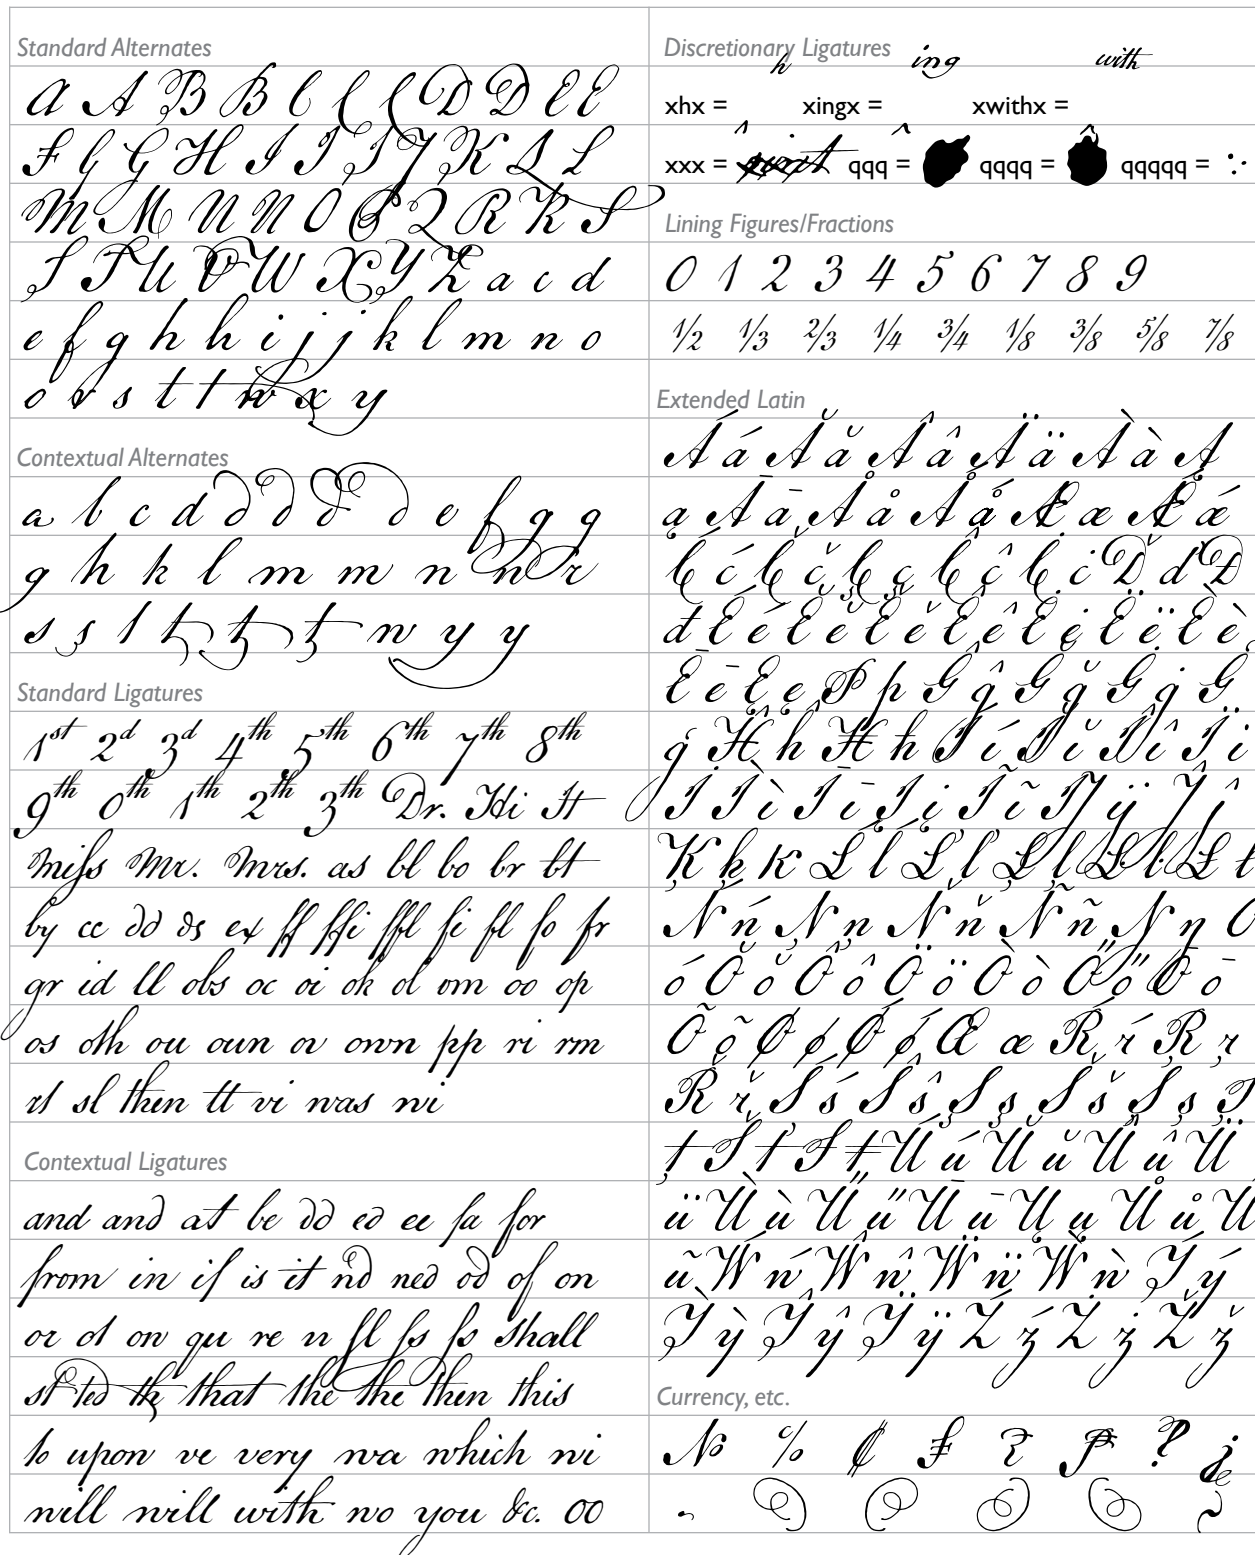 Standard Alternates
A A B B C C C D D E E
F G G H I I J J K L L
M M N N O P Q R R S
S T U V W X Y Z a c d
e f g h h i j j k l m n o
o r s t t w x y
Contextual Alternates
a b c d d d d d e f g g
g h k l m m n n r
s s t t t t w y y
Standard Ligatures
1st 2d 3d 4th 5th 6th 7th 8th
9th 0th 1th 2th 3th Dr. Hi St
Miſs Mr. Mrs. as bl bo br bt
by cc dd ds ex ff ffi ffl fi fl fo fr
gr id ll obs oc oi ok ol om oo op
os oth ou oun ov own pp ri rm
rt sl then tt vi was wi
Contextual Ligatures
and and at be dd ed ee fa for
from in if is it nd ned od of on
or ot ow qu re ri ſl ſs ſs shall
st ted th that the the then this
to upon ve very wa which wi
will will with wo you &c. OO
Discretionary Ligatures
xhx = h xingx = ing xwithx = with
xxx = qqq = qqqq = qqqqq =
Lining Figures/Fractions
0 1 2 3 4 5 6 7 8 9
1/2 1/3 2/3 1/4 3/4 1/8 3/8 5/8 7/8
Extended Latin
Á á Ă ă Â â Ä ä À à Ą
ą Ā ā Å å Ǻ ǻ Æ æ Ǽ ǽ
Ć ć Č č Ç ç Ĉ ĉ Ċ ċ Ď ď Đ
đ É é Ě ě Ĕ ĕ Ê ê Ė ė Ë ë È è
Ē ē Ę ę Þ þ Ĝ ĝ Ğ ğ Ġ ġ Ģ
ģ Ĥ ĥ Ħ ħ Í í Ĭ ĭ Î î Ï ï
İ Ì ì Ī ī Į į Ĩ ĩ Ĳ ĳ Ĵ ĵ
Ķ ķ ĸ Ĺ ĺ Ľ ľ Ļ ļ Ŀ ŀ Ł ł
Ń ń Ņ ņ Ň ň Ñ ñ Ŋ ŋ Ó
ó Ŏ ŏ Ô ô Ö ö Ò ò Ő ő Ō ō
Õ õ Ø ø Ǿ ǿ Œ œ Ŕ ŕ Ŗ ŗ
Ř ř Ś ś Ŝ ŝ Ş ş Š š Ș ș Ţ
ţ Ť ť Ŧ ŧ Ú ú Ŭ ŭ Û û Ü
ü Ù ù Ű ű Ū ū Ų ų Ů ů Ũ
ũ Ẃ ẃ Ŵ ŵ Ẅ ẅ Ẁ ẁ Ý ý
Ỳ ỳ Ŷ ŷ Ÿ ÿ Ź ź Ż ż Ž ž
Currency, etc.
№ %